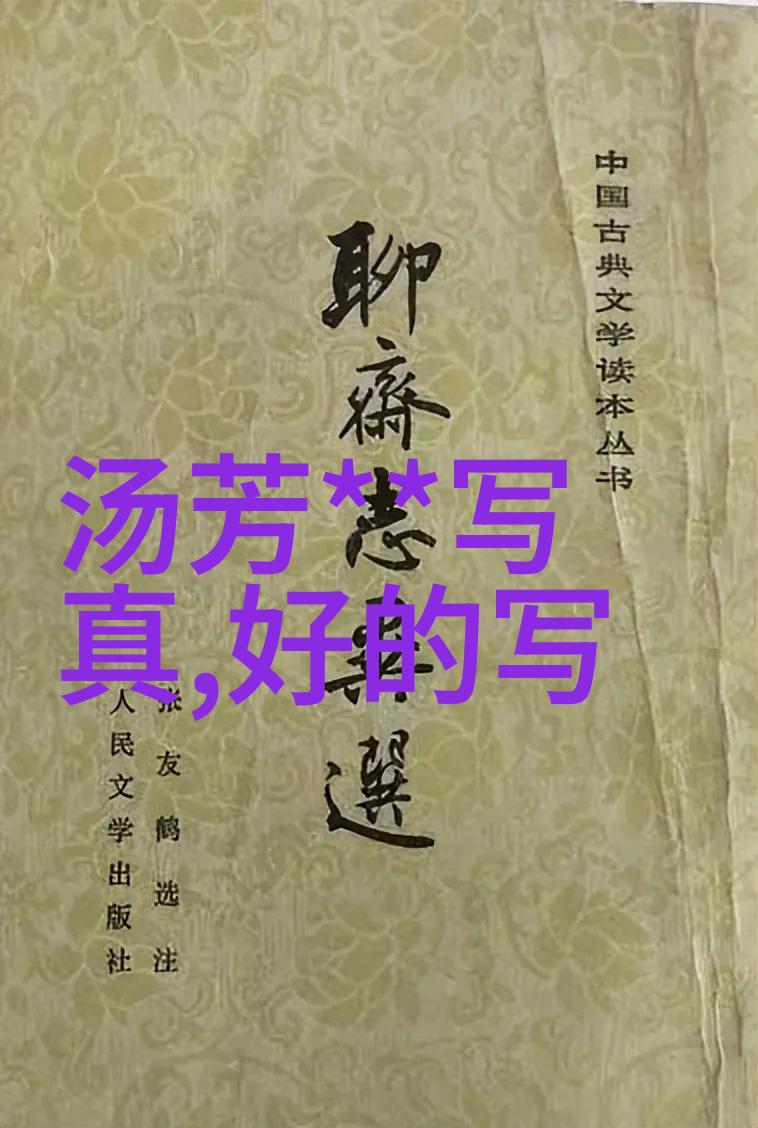 中国古典文学读本丛书
聊齋志異選
张友鹤选注
人民文学出版社
汤芳**写
真,好的写